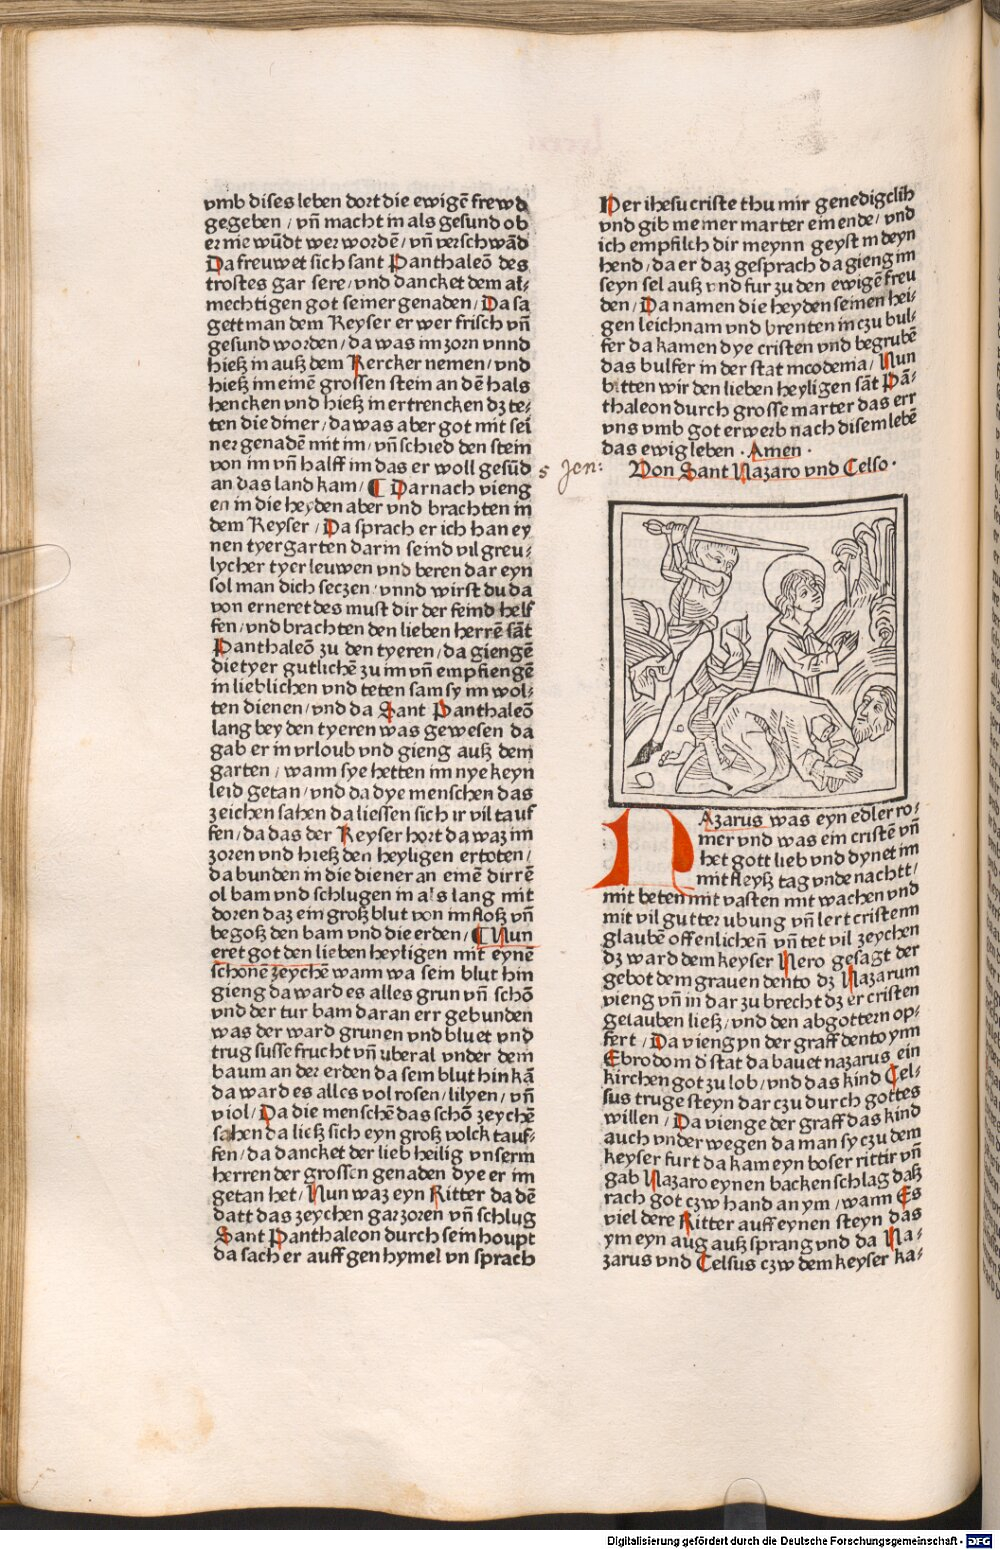 vmb dises leben dort die ewigē frewd
gegeben / vñ macht in als gesund ob
er nie wūdt wer wordē / vñ verschwād
Da freuwet sich sant Panthaleō des
trostes gar sere / vnd dancket dem al⸗
mechtigen got seiner genaden / Da sa
gett man dem Keyser er wer frisch vñ
gesund worden / da was im zorn vnnd
hieß in auß dem Kercker nemen / vnd
hieß im einē grossen stein an dē hals
hencken vnd hieß in ertrencken dz te⸗
ten die diner / da was aber got mit sei
ner genadē mit im / vñ schied den stein
von im vñ halff im das er woll gesūd
an das land kam / ¶ Darnach vieng
en in die heyden aber vnd brachten in
dem Keyser / Da sprach er ich han ey
nen tyergarten darin seind vil greu⸗
lycher tyer leuwen vnd beren dar eyn
sol man dich seczen / vnnd wirst du da
von erneret des must dir der feind helf
fen / vnd brachten den lieben herrē sāt
Panthaleō zu den tyeren / da giengē
die tyer gutlichē zu im vñ empfiengē
in lieblichen vnd teten sam sy im wol⸗
ten dienen / vnd da Sant Panthaleō
lang bey den tyeren was gewesen da
gab er in vrloub vnd gieng auß dem
garten / wann sye hetten im nye keyn
leid getan / vnd da dye menschen das
zeichen sahen da liessen sich ir vil tauf
fen / da das der Keyser hort da waz im
zoren vnd hieß den heyligen ertoten /
da bunden in die diener an einē dirrē
ol bam vnd schlugen in als lang mit
doren daz ein groß blut von im floß vñ
begoß den bam vnd die erden / ¶ Nun
eret got den lieben heyligen mit eynē
schonē zeychē wann wa sein blut hin
gieng da ward es alles grun vñ schō
vnd der tur bam daran err gebunden
was der ward grunen vnd bluet vnd
trug susse frucht vñ uberal vnder dem
baum an der erden da sem blut hin kā
da ward es alles vol rosen / lilyen / vñ
viol / Da die menschē das schō zeychē
sahen da ließ sich eyn groß volck tauf⸗
fen / da dancket der lieb heilig vnserm
herren der grossen genaden dye er im
getan het / Nun waz eyn Ritter da dē
datt das zeychen gar zoren vñ schlug
Sant Panthaleon durch sein houpt
da sach er auff gen hymel vn sprach
Her ihesu criste thu mir genedigclih
vnd gib meiner marter ein ende / vnd
ich empfilch dir meynn geyst in deyn
hend / da er daz gesprach da gieng im
seyn sel auß vnd fur zu den ewigē freu
den / Da namen die heyden seinen hei⸗
gen leichnam vnd brenten in czu bul⸗
fer da kamen dye cristen vnd begrubē
das bulfer in der stat nicodemia / Nun
bitten wir den lieben heyligen sāt Pā⸗
thaleon durch grosse marter das err
vns vmb got erwerb nach disem lebē
das ewig leben · Amen ·
5 Jen:
Von Sant Nazaro vnd Celso ·
NAzarus was eyn edler ro⸗
mer vnd was ein cristē vñ
het gott lieb vnd dynet im
mit fleysz tag vnde nachtt /
mit beten mit vasten mit wachen vnd
mit vil gutter ubung vñ lert cristenn
glaubē offenlichen̄ vñ tet vil zeychen
dz ward dem keyser Nero gesagt der
gebot dem grauen dento dz Nazarum
vieng vñ in dar zu brecht dz er cristen
gelauben ließ / vnd den abgottern op⸗
fert / Da vieng yn der graff dento ynn
Ebrodom d' stat da bauet nazarus ein
kirchen got zu lob / vnd das kind Cel⸗
sus truge steyn dar czu durch gottes
willen / Da vienge der graff das kind
auch vnder wegen da man sy czu dem
keyser furt da kam eyn boser rittir vñ
gab Nazaro eynen backenschlag daß
rach got czw hand an ym / wann Es
viel dere Ritter auff eynen steyn das
ym eyn aug auß sprang vnd da Na⸗
zarus vnd Celsus czw dem keyser ka⸗
Digitalisierung gefördert durch die Deutsche Forschungsgemeinschaft - DFG